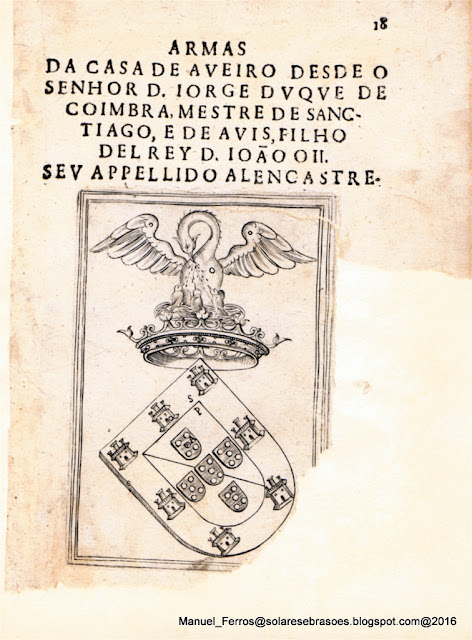 18
ARMAS
DA CASA DE AVEIRO DESDE O
SENHOR D. IORGE DVQVE DE
COIMBRA, MESTRE DE SANC-
TIAGO, E DE AVIS, FILHO
DEL REY D. IOÃO O II.
SEV APPELLIDO ALENCASTRE.
S
P
A
Manuel_Ferros@solaresebrasoes.blogspot.com@2016